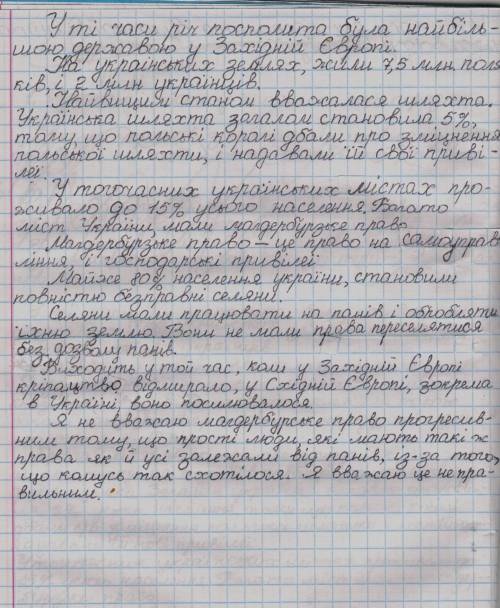 У ті часи річ посполита була найбіль-
шою державою у Західній Європі.
На українських землях, жили 7,5 млн. поля
ків, і 2 млн українців.
Найвищим станом вважалася шляхта.
Українська шляхта загалом становила 5%,
тому, що польські королі дбали про зміцнення
польської шляхти, і надавали їй свої приві-
леї.
У тогочасних українських містах про-
живало до 15% усього населення. Багато
міст України мали магдербузке право.
Магдербурзьке право – це право на самоуправ
ління, і господарські привілеї
Майже 80% населення україни, становили
повністю безправні селяни.
Селяни мали працювати на панів і обробляти
їхню землю. Вони не мали права переселятися
без дозволу панів.
Виходить у той час, коли у Західній Європі
кріпацтво відмирало, у Східній Європі, зокрема
в Україні, воно посилювалося.
Я не вважаю магдербурське право прогресив-
ним тому, що прості люди, які мають такі ж
права як й усі залежали від панів, із-за того,
що комусь так схотілося. Я вважаю це непра-
вильним.